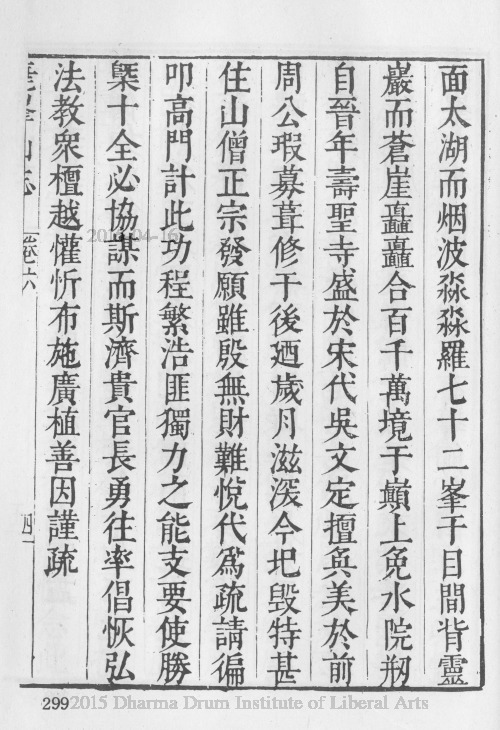 面太湖而烟波淼淼羅七十二峯于目間背靈
巖而蒼崖矗矗合百千萬境于巔上免水院剏
自晉年壽聖寺盛於宋代吳文定擅奐美於前
周公瑕募葺修于後廼歲月滋深今圯毀特甚
住山僧正宗發願雖殷無財難悅代爲疏請徧
叩高門計此功程繁浩匪獨力之能支要使勝
槩十全必協謀而斯濟貴官長勇往率倡恢弘
法教衆檀越懽忻布施廣植善因謹疏
山志 卷六 四
299 2015 Dharma Drum Institute of Liberal Arts